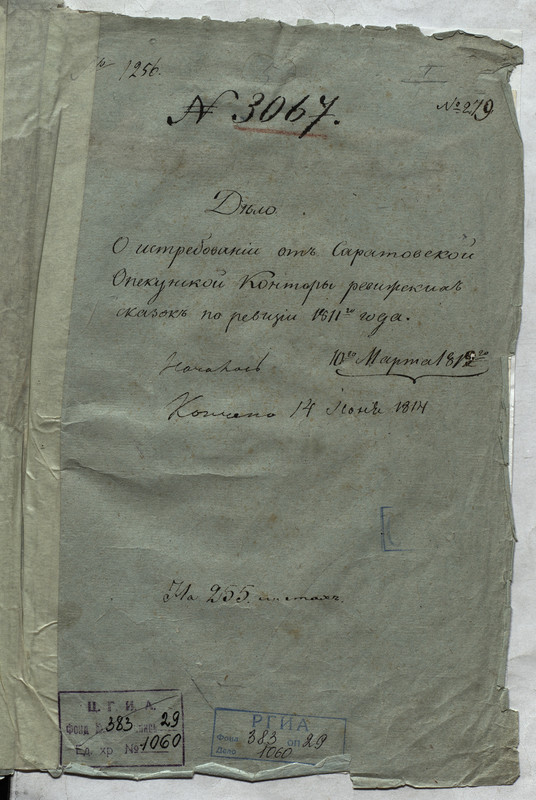 1256.
№ 3067.
№ 279
Дѣло.
О истребованіи отъ Саратовской
Опекунской Конторы ревизскихъ
сказокъ по ревизіи 1811го года.
Началось 10го Марта
Кончено 14 Іюнь 1814
На 255. листахъ.
Ц. Г. И. А.
Фонд № 383 опись 29
Ед. хр. № 1060
РГИА
Фонд 383 оп 29
Дело 1060